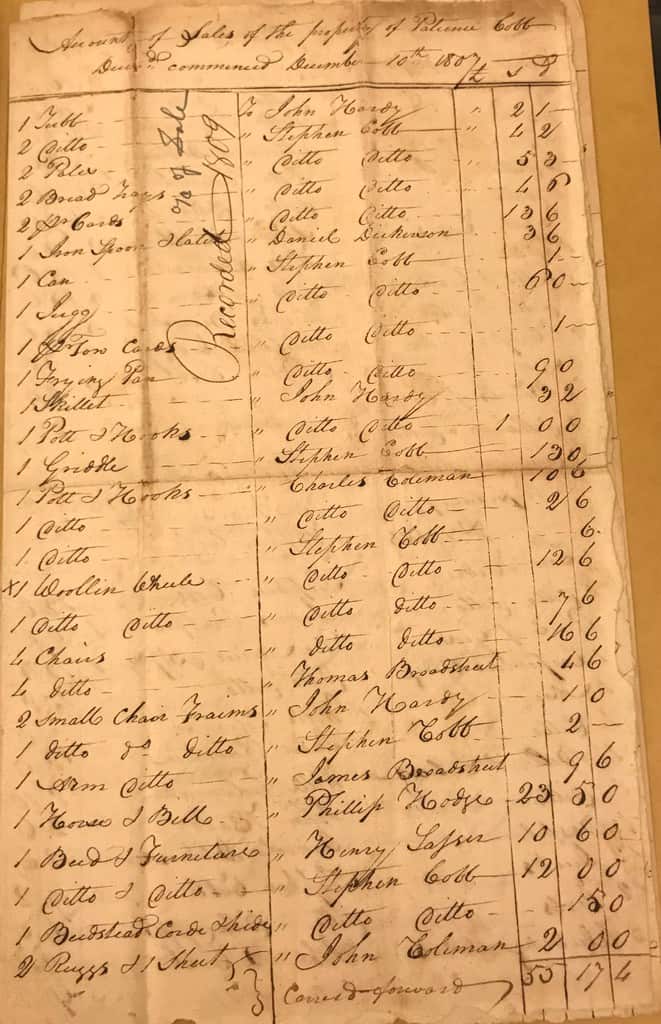 Account of Sales of the property of Patience Cobb
Decesd commenced December 10th 1807 / £ S D
Recorded Va of Sale 1809
1 Tubb - To John Hardy " 2 1 -
2 Ditto - " Stephen Cobb " 4 2
2 Pales - " Ditto Ditto " 5 3 -
2 Bread Trays " Ditto Ditto 4 6
2 pr Cards " Ditto Ditto 13 6
1 Iron Spoon & Ladle " Daniel Dickenson 3 6
1 Can - " Stephen Cobb 1 -
1 Jugg - " Ditto Ditto 6 0 -
1 pr Tow Cards " Ditto Ditto 1 -
1 Frying Pan " Ditto Ditto 9 0
1 Skillet - " John Hardy 3 2
1 Pott & Hooks - " Ditto Ditto 1 0 0
1 Griddle - " Stephen Cobb - 13 0
1 Pott & Hooks - " Charles Coleman 10 6
1 Ditto - " Ditto Ditto - 2 6
1 Ditto - " Stephen Cobb - 6
x1 Woollin Wheele " Ditto Ditto 12 6
1 Ditto Ditto - " Ditto Ditto 7 6
4 Chairs - " Ditto Ditto 16 6
4 ditto - " Thomas Broadstreet 4 6
2 small Chair Fraims " John Hardy - 1 0
1 ditto do ditto " Stephen Cobb - 2 -
1 Arm Ditto " James Broadstreet 9 6
1 Horse & Bell - " Phillip Hodge - 23 5 0
1 Beed & Furneture " Henry Lasser 10 6 0
1 Ditto & Ditto - " Stephen Cobb 12 0 0
1 Beedstead Corde & hide " Ditto Ditto - 15 0
2 Ruggs & 1 Sheet " John Coleman 2 0 0
Carred forward 55 17 4